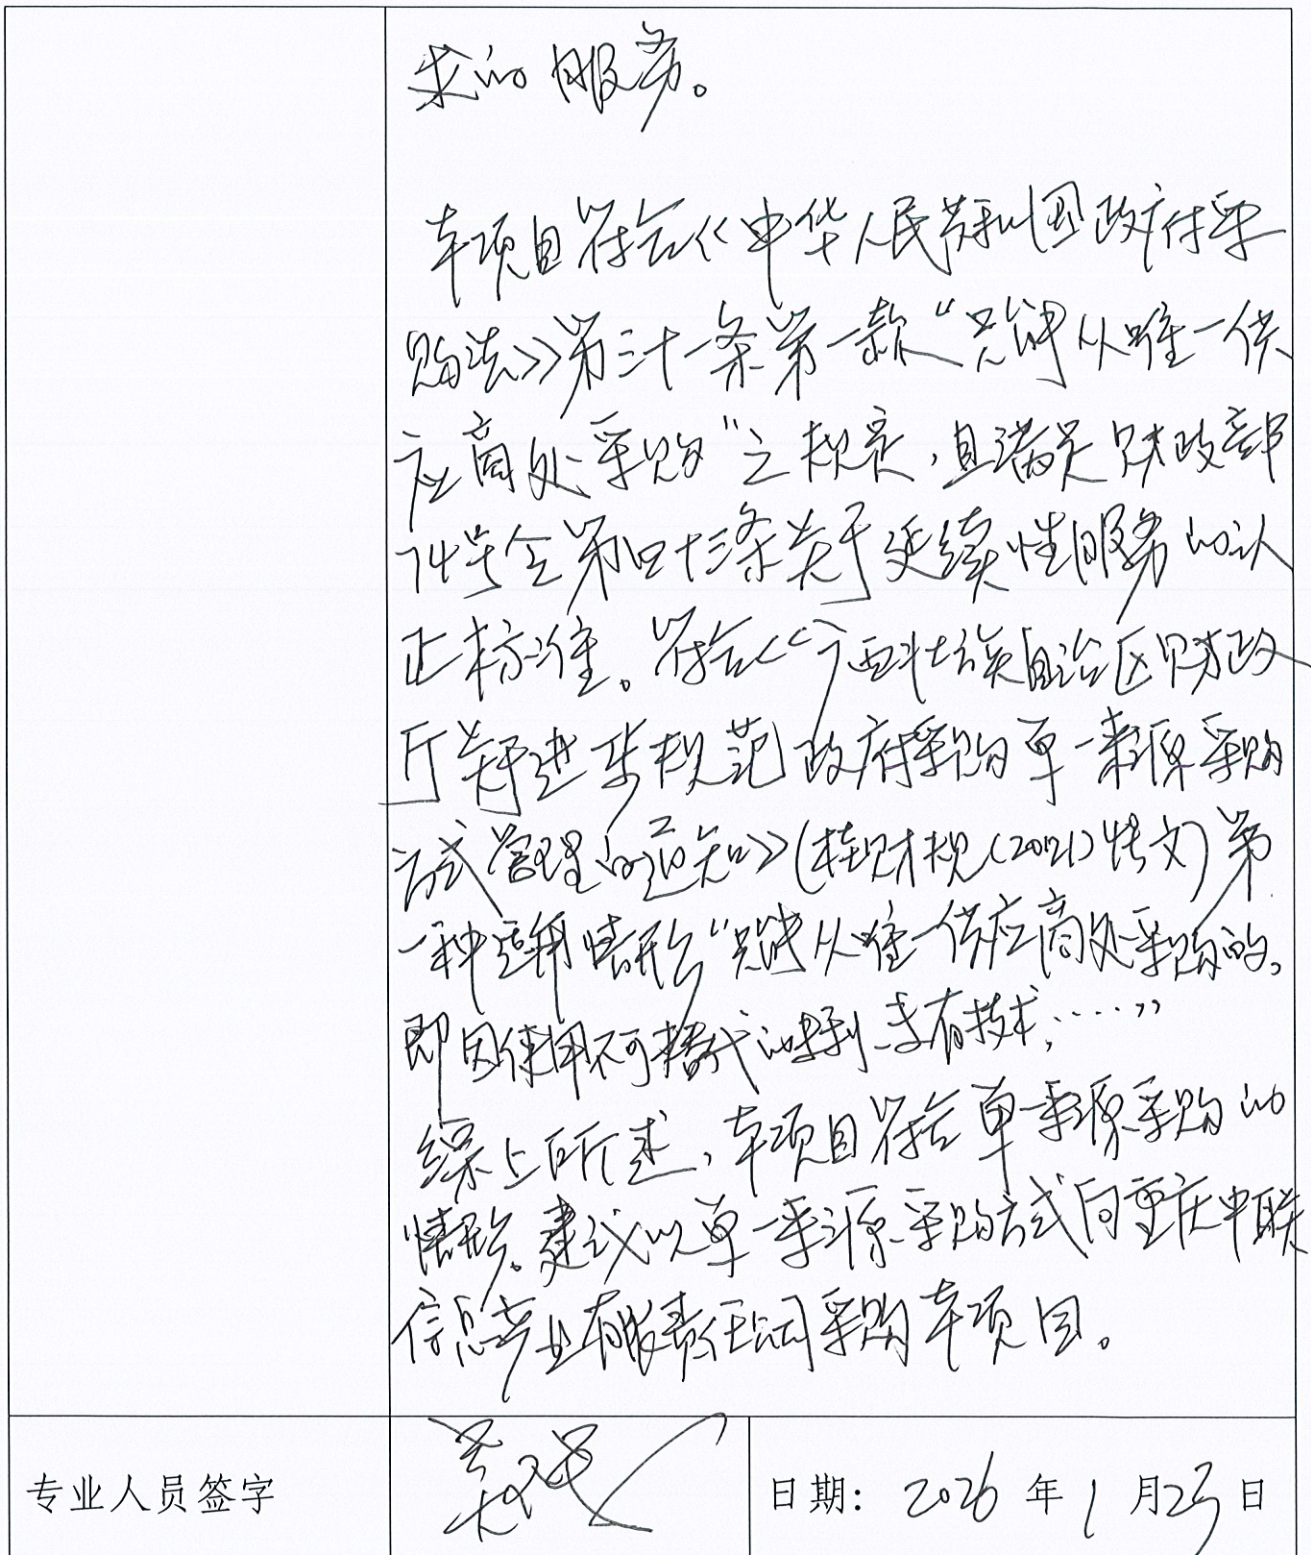 求的服务。
本项目符合《中华人民共和国政府采
购法》第三十一条第一款“只能从唯一供
应商处采购”之规定，且满足财政部
74号令第四十三条关于延续性服务的认
正标准。符合《广西壮族自治区财政
厅关于进一步规范政府采购单一来源采购
方式管理的通知》(桂财规(2021)文)第
一种适用情形“只能从唯一供应商处采购的，
即因使用不可替代的专利、专有技术，……”
综上所述，本项目符合单一来源采购的
情形。建议以单一来源采购方式向重庆中联
信息产业有限责任公司采购本项目。
专业人员签字
日期：2026年1月23日